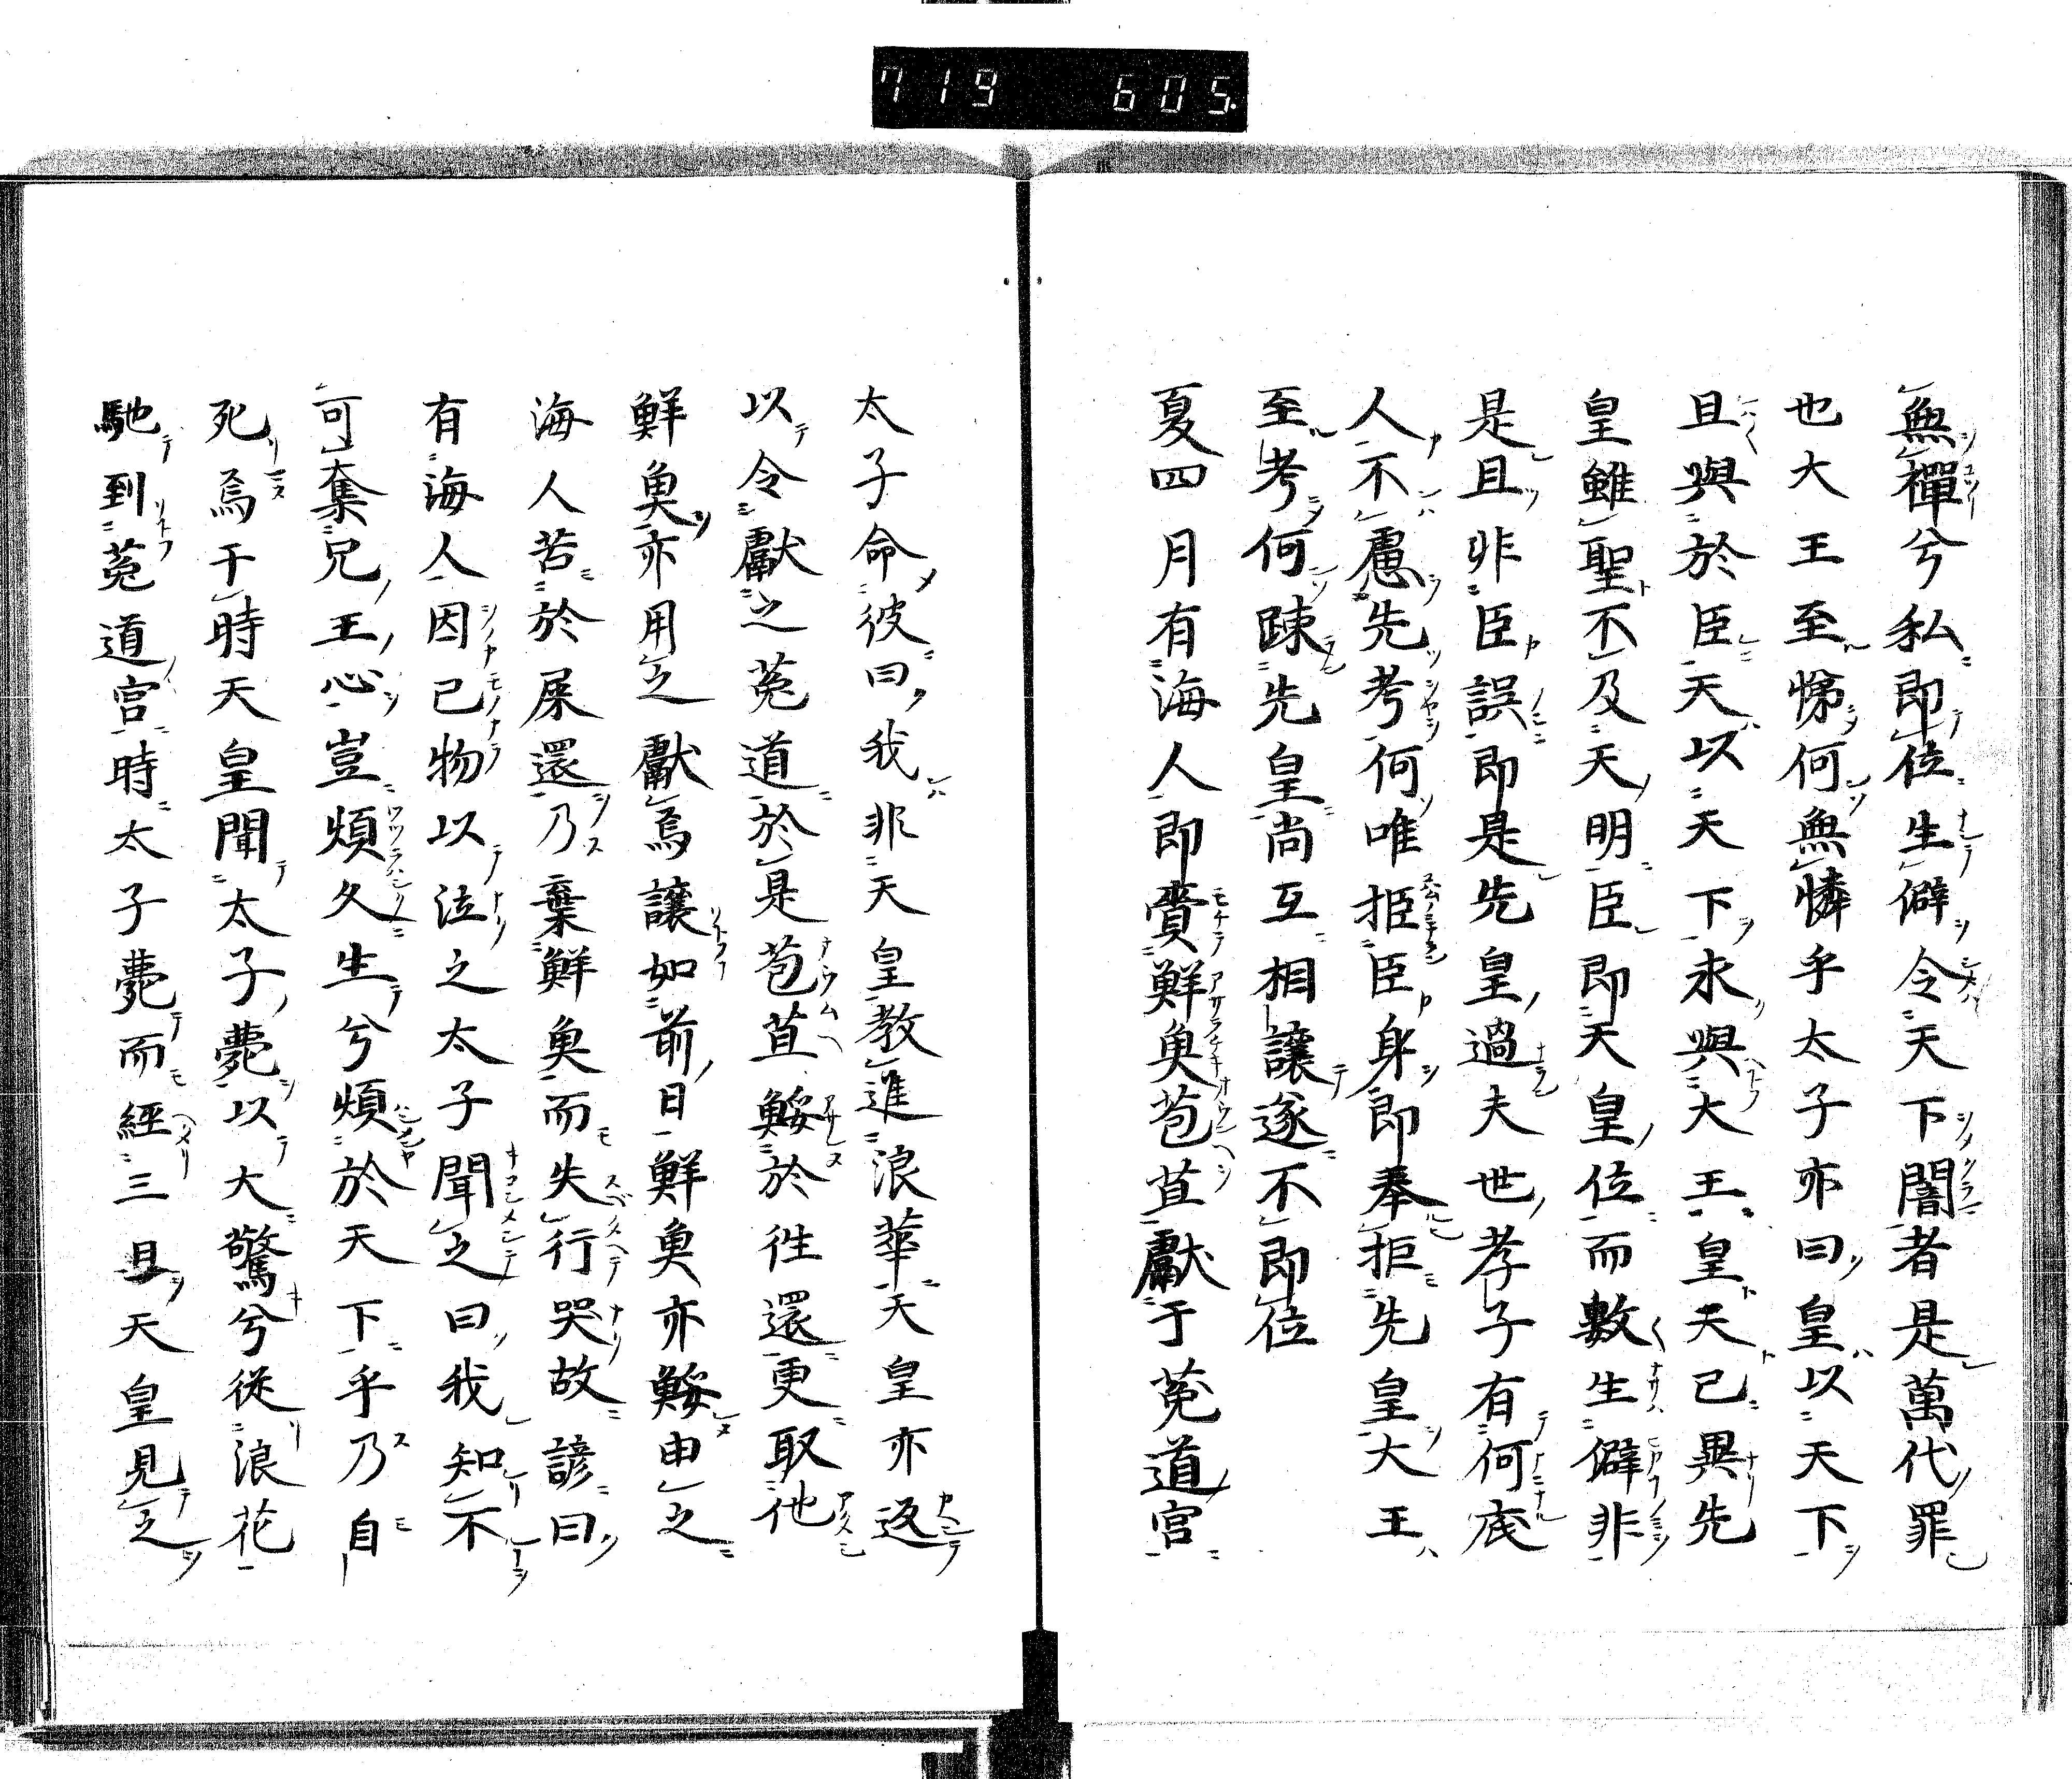 719 605.
無禪兮私即位生僻令天下闇者是萬代罪
也大王至悌何無憐乎太子亦曰皇以天下
且與於臣天以天下永與大王皇天已畢先
皇雖聖不及天明臣即天皇位而數生僻非
是且非臣誤即是先皇過夫世孝子有何底
人不慮先考何唯拒臣身即奉拒先皇大王
至考何踈先皇尚互相讓遂不即位
夏四月有海人即賷鮮魚苞苴獻于菟道宮
太子命彼曰我非天皇教進浪華天皇亦返
以令獻之菟道於是苞苴鯘於徃還更取他
鮮魚亦用之獻焉讓如前日鮮魚亦鯘申之
海人苦於屎還乃棄鮮魚而失行哭故諺曰
有海人因己物以泣之太子聞之曰我知不
可奪兄王心豈煩久生兮煩於天下乎乃自
死焉于時天皇聞太子薨以大驚兮從浪花
馳到菟道宮時太子薨而經三旦天皇見之